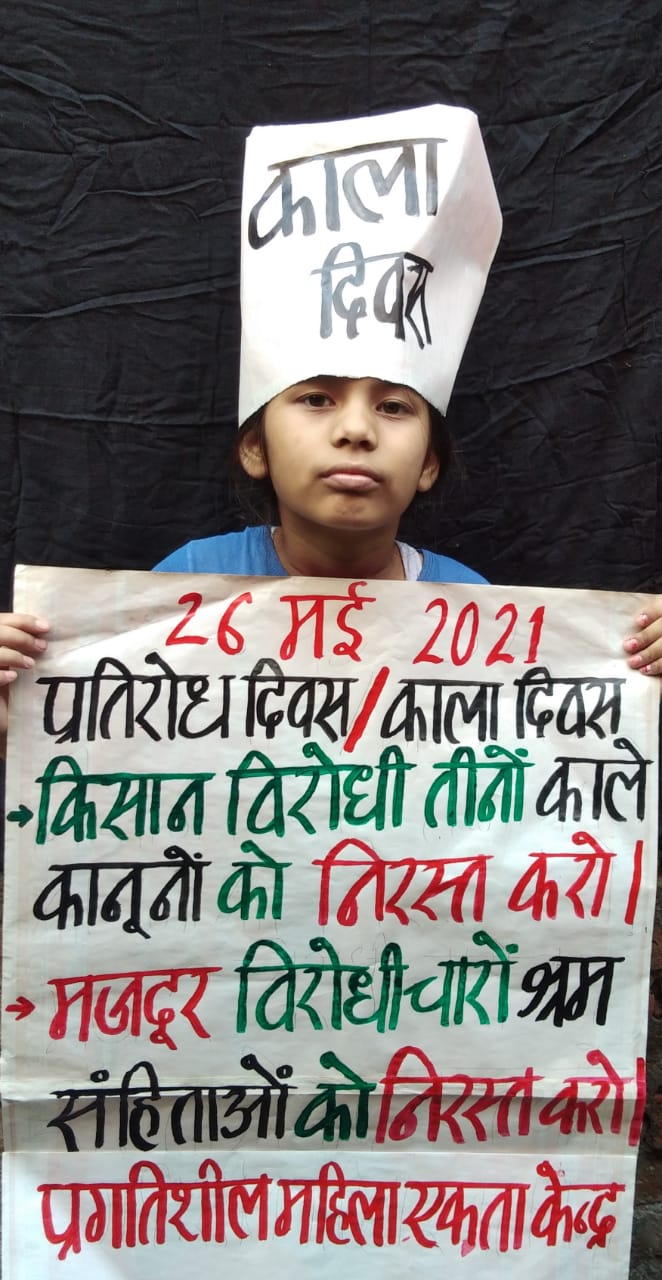 काला
दिवस
26 मई 2021
प्रतिरोध दिवस/काला दिवस
→किसान विरोधी तीनों काले
कानूनों को निरस्त करो।
→मजदूर विरोधी चारों श्रम
संहिताओं को निरस्त करो।
प्रगतिशील महिला एकता केन्द्र